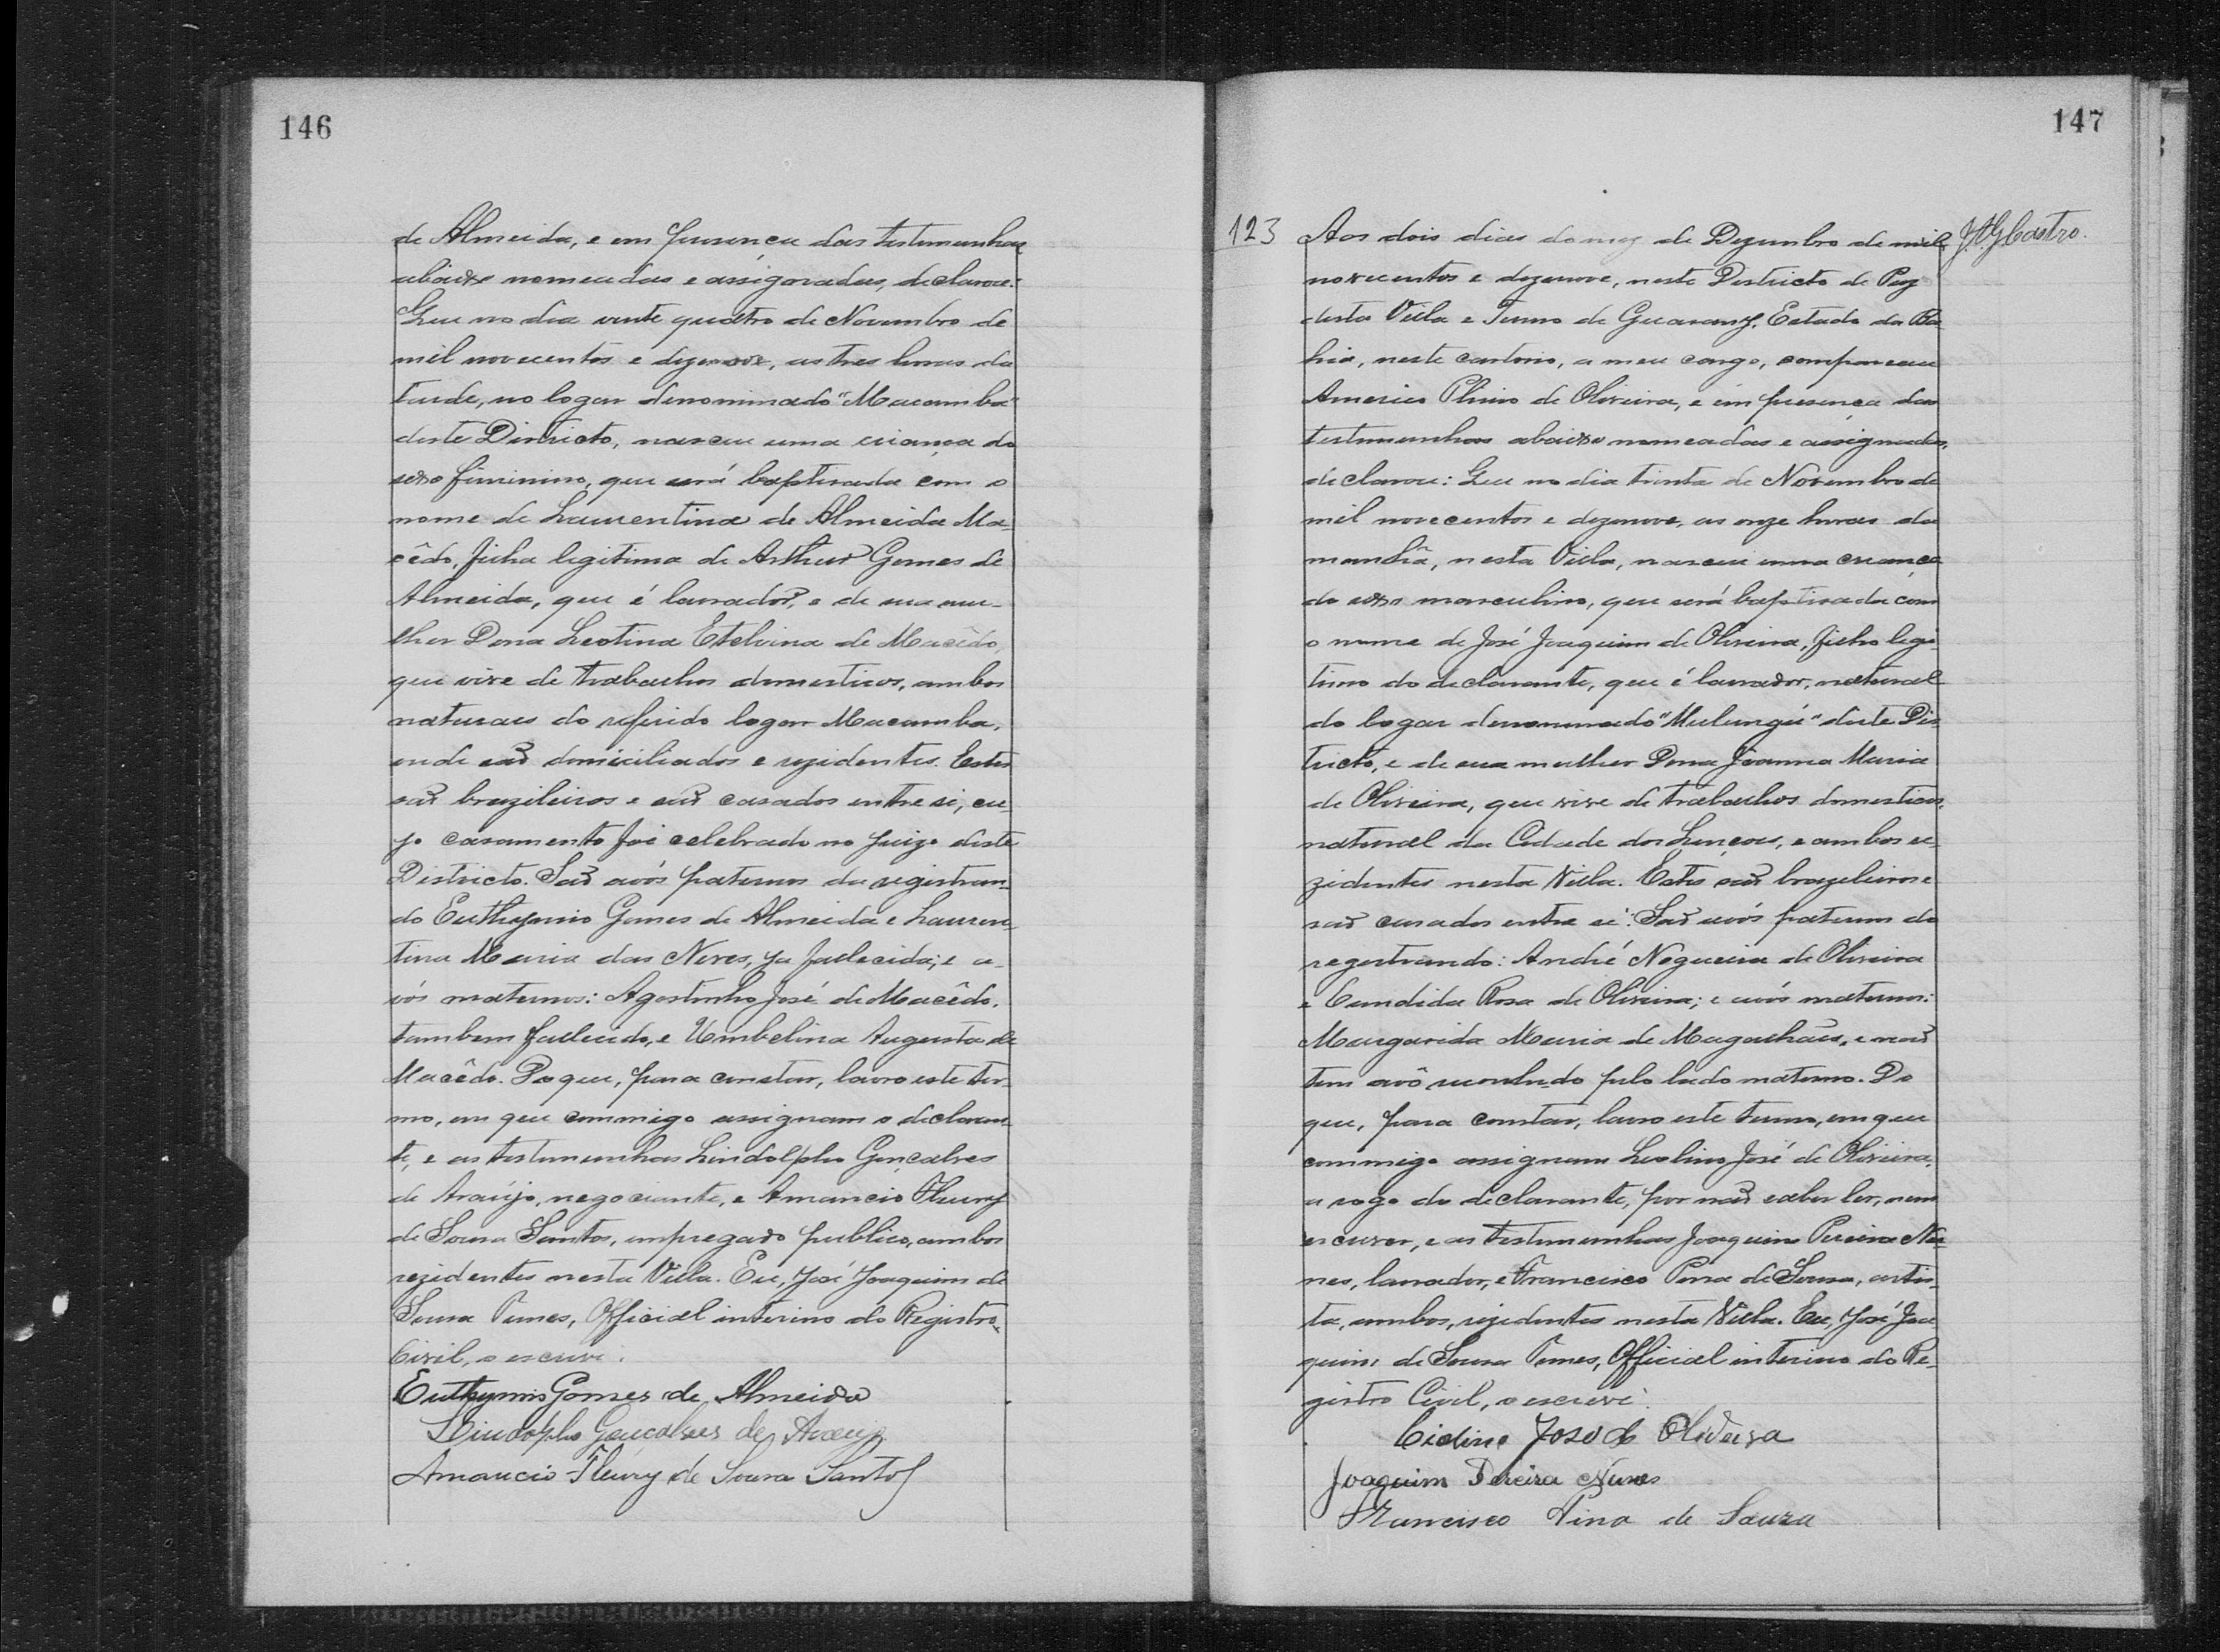 146
de Almeida, e em presença das testemunhas
abaixo nomeadas e assignadas, declarou:
Que no dia vinte quatro de Novembro de
mil novecentos e dezenove, as tres horas da
tarde, no logar denominado "Macamba"
deste Districto, nasceu uma criança do
sexo feminino, que será baptisada com o
nome de Laurentina de Almeida Ma-
cêdo, filha legitima de Arthur Gomes de
Almeida, que é lavrador, e de sua mu-
lher Dona Leotina Etelvina de Macêdo,
que vive de trabalhos domesticos, ambos
naturaes do referido logar Macamba,
onde são domiciliados e rezidentes. Estes
são brazileiros e são casados entre si, cu-
jo casamento foi celebrado no Juizo deste
Districto. São avós paternos da registran-
do Euthymio Gomes de Almeida e Lauren-
tina Maria das Neves, ja fallecida; e a-
vós maternos: Agostinho José de Macêdo,
tambem fallecido, e Umbelina Augusta de
Macêdo. Do que, para constar, lavro este ter-
mo, em que commigo assignam o declaran-
te, e as testemunhas Lindolpho Gonçalves
de Araújo, negociante, e Amancio Fleury
de Sousa Santos, empregado publico, ambos
rezidentes nesta Villa. Eu, José Joaquim de
Sousa Tunes, Official interino do Registro
Civil, o escrevi.
Euthymio Gomes de Almeida
Lindolpho Gonçalves de Araujo
Amancio Fleury de Sousa Santos
147
123 Aos dois dias do mez de Dezembro de mil J. A. G. Castro.
novecentos e dezenove, neste Districto de Paz
desta Villa e Termo de Guarany, Estado da Ba-
hia, neste cartorio, a meu cargo, compareceu
Americo Plinio de Oliveira, e em presença das
testemunhas abaixo nomeadas e assignadas,
declarou: Que no dia trinta de Novembro de
mil novecentos e dezenove, as onze horas da
manhã, nesta Villa, nasceu uma criança
do sexo masculino, que será baptisada com
o nome de José Joaquim de Oliveira, filho legi-
timo do declarante, que é lavrador, natural
do logar denominado "Mulungú" deste Dis-
tricto, e de sua mulher Dona Joanna Maria
de Oliveira, que vive de trabalhos domesticos,
natural da Cidade dos Lençoes, e ambos re-
zidentes nesta Villa. Estes são brazileiros e
são casados entre si. São avós paternos do
registrando: André Nogueira de Oliveira
e Candida Rosa de Oliveira; e avós maternos:
Margarida Maria de Magalhães, e não
tem avô conhecido pelo lado materno. Do
que, para constar, lavro este termo, em que
commigo assignam José de Oliveira,
a rogo do declarante, por não saber ler, nem
escrever, e as testemunhas Joaquim Pereira Nu-
nes, lavrador, e Francisco Pina de Sousa, artis-
ta, ambos, rezidentes nesta Villa. Eu, José Joa-
quim de Sousa Tunes, Official interino do Re-
gistro Civil, o escrevi.
José de Oliveira
Joaquim Pereira Nunes
Francisco Pina de Souza